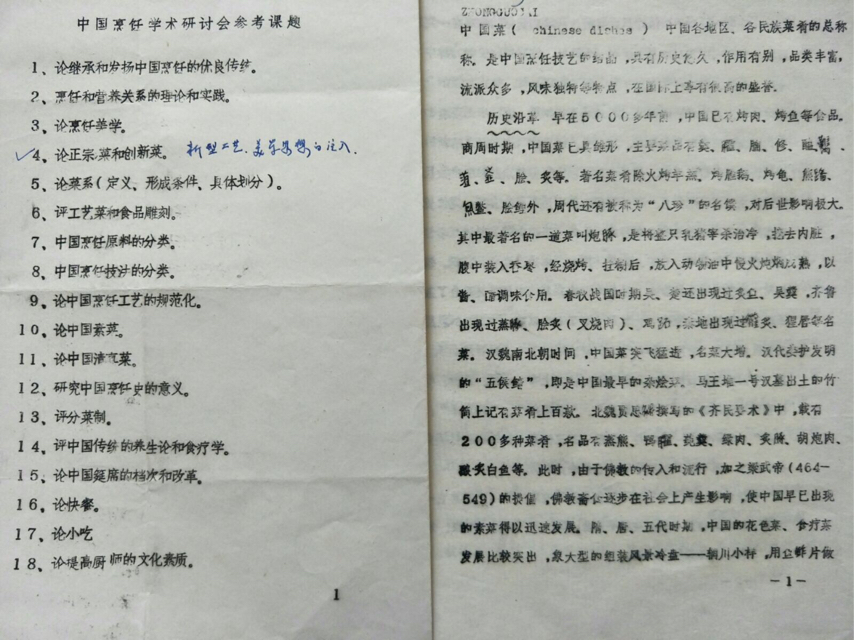 中国烹饪学术研讨会参考课题
1、论继承和发扬中国烹饪的优良传统。
2、烹饪和营养关系的理论和实践。
3、论烹饪美学。
4、论正宗菜和创新菜。 新型工艺、美学思想的注入.
5、论菜系(定义、形成条件、具体划分)。
6、评工艺菜和食品雕刻。
7、中国烹饪原料的分类。
8、中国烹饪技法的分类。
9、论中国烹饪工艺的规范化。
10、论中国素菜。
11、论中国清真菜。
12、研究中国烹饪史的意义。
13、评分菜制。
14、评中国传统的养生论和食疗学。
15、论中国筵席的档次和改革。
16、论快餐。
17、论小吃
18、论提高厨师的文化素质。
1
中国菜( chinese dishes ) 中国各地区、各民族菜肴的总称
称。是中国烹饪技艺的结晶,具有历史悠久,作用有别,品类丰富,
流派众多,风味独特等特点,在国际上享有很高的盛誉。
历史沿革 早在5000多年前,中国已有烤肉、烤鱼等食品。
商周时期,中国菜已具雏形,主要菜品有羹、脯、脩、
脍、炙等。著名菜肴除火烤羊羔、炮、熊蹯、
外,周代还有被称为“八珍”的名馔,对后世影响极大。
其中最著名的一道菜叫炮豚,是将整只乳猪宰杀治净,挖去内脏,
腹中装入香枣,经烧烤、挂糊后,放入动物油中慢火炖焖成熟,以
酱、醋调味食用。春秋战国时期吴、楚还出现过炙鱼、吴羹,齐鲁
出现过蒸豚、脍炙(叉烧肉)、鸡,秦地出现过炙、等名
菜。汉魏南北朝时间,中国菜突飞猛进,名菜大增。汉代娄护发明
的“五侯鲭”,即是中国最早的杂烩。马王堆一号汉墓出土的竹
简上记有菜肴上百款。北魏贾思勰撰写的《齐民要术》中,载有
200多种菜肴,名品有蒸熊、羹、绿肉、胡炮肉、
酿炙白鱼等。此时,由于佛教的传入和流行,加之梁武帝(464-
549)的提倡,佛教斋食逐步在社会上产生影响,使中国早已出现
的素菜得以迅速发展。隋、唐、五代时期,中国的花色菜、食疗菜
发展比较突出,象大型的组装风景冷盘——辋川小样,用鱼鲜片做
-1-